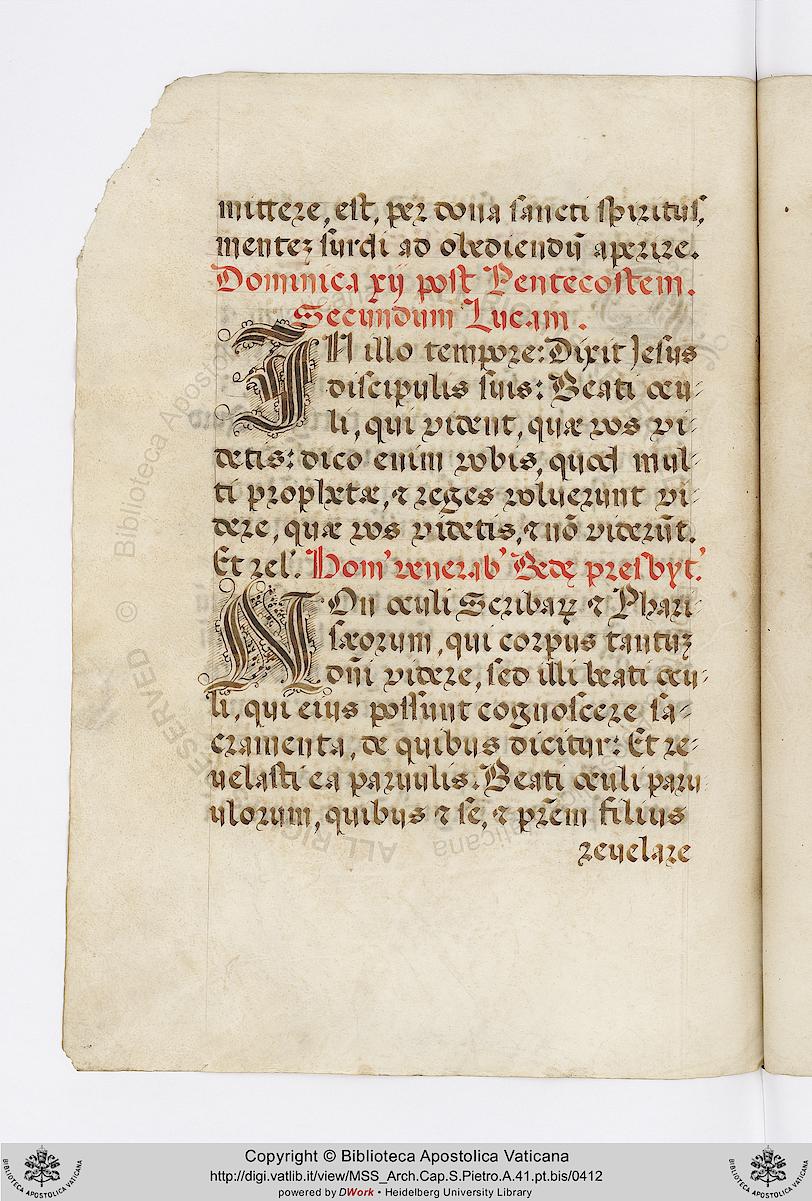 mittere, est, per dona sancti spiritus,
mentez surdi ad obediendū aperire.
Dominica xij post Pentecostem.
Secundum Lucam.
IN illo tempore: Dixit Jesus
discipulis suis: Beati ocu-
li, qui vident, quæ vos vi-
detis: dico enim vobis, quod mul-
ti prophetæ, ⁊ reges voluerunt vi-
dere, quæ vos videtis, ⁊ nō viderūt.
Et rel'. Hom' venerab' Bedę presbyt'.
NOn oculi Scribaꝝ ⁊ Phari-
sæorum, qui corpus tantuz
dn̄i videre, sed illi beati ocu-
li, qui eius possunt cognoscere sa-
cramenta, de quibus dicitur: Et re-
uelasti ea paruulis. Beati oculi paru-
ulorum, quibus ⁊ se, ⁊ pr̄em filius
reuelare
Copyright © Biblioteca Apostolica Vaticana
http://digi.vatlib.it/view/MSS_Arch.Cap.S.Pietro.A.41.pt.bis/0412
powered by DWork • Heidelberg University Library